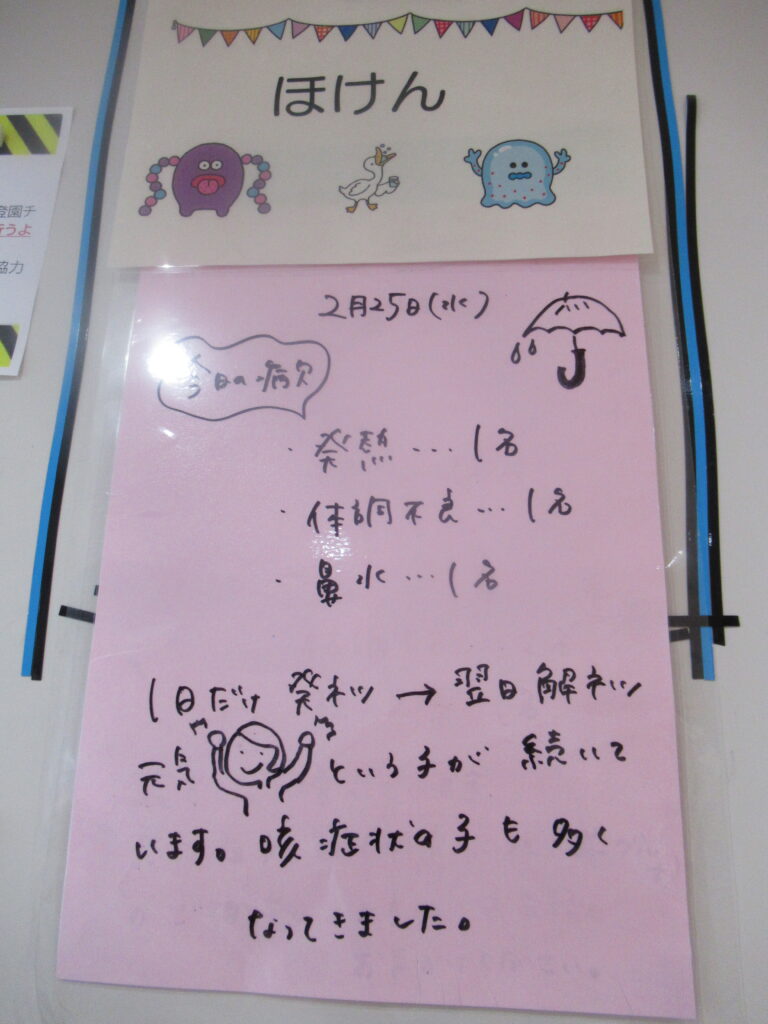 ほけん
登園チ
行うよ
協力
2月25日(水)
今日の病欠
・発熱…1名
・体調不良…1名
・鼻水…1名
1日だけ 発ネツ → 翌日 解ネツ
元気 という子が 続いて
います。咳症状の子も多く
なってきました。